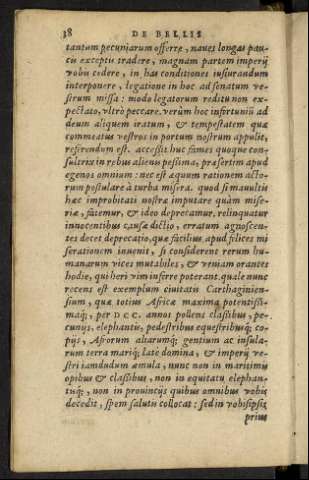 38 DE BELLIS
tantum pecuniarum offerre, naues longas pau-
cis exceptis tradere, magnam partem imperij
vobis cedere, in has conditiones iusiurandum
interponere, legatione in hoc ad senatum ve-
strum missa: modo legatorum reditu non ex-
pectato, vltrò peccare. verùm hoc infortunii ad
deum aliquem iratum, & tempestatem quæ
commeatus vestros in portum nostrum appulit,
referendum est. accessit huc fames quoque con-
sultrix in rebus alienis pessima, præsertim apud
egenos omnium: nec est æquum rationem acto-
rum postulare à turba misera. quod si mauultis
hæc improbitati nostræ imputare quàm mise-
riæ, fatemur, & ideo deprecamur. relinquatur
innocentibus causæ dictio, erratum agnoscen-
tes decet deprecatio, quæ facilius apud felices mi
serationem inuenit, si considerent rerum hu-
manarum vices mutabiles, & veniam orantes
hodie, qui heri vim inferre poterant. quale nunc
recens est exemplum ciuitatis Carthaginien-
sium, quæ totius Africæ maxima potentissi-
maq;, per DCC. annos pollens classibus, pe-
cunijs, elephantis, pedestribus equestribusq; co-
pijs, Afrorum aliarumq; gentium ac insula-
rum terra mariq; latè domina, & imperij ve-
stri iamdudum æmula, nunc non in maritimis
opibus & classibus, non in equitatu elephan-
tisq;, non in prouincijs quibus omnibus vobis
decedit, spem salutis collocat: sed in vobisipsis
prius